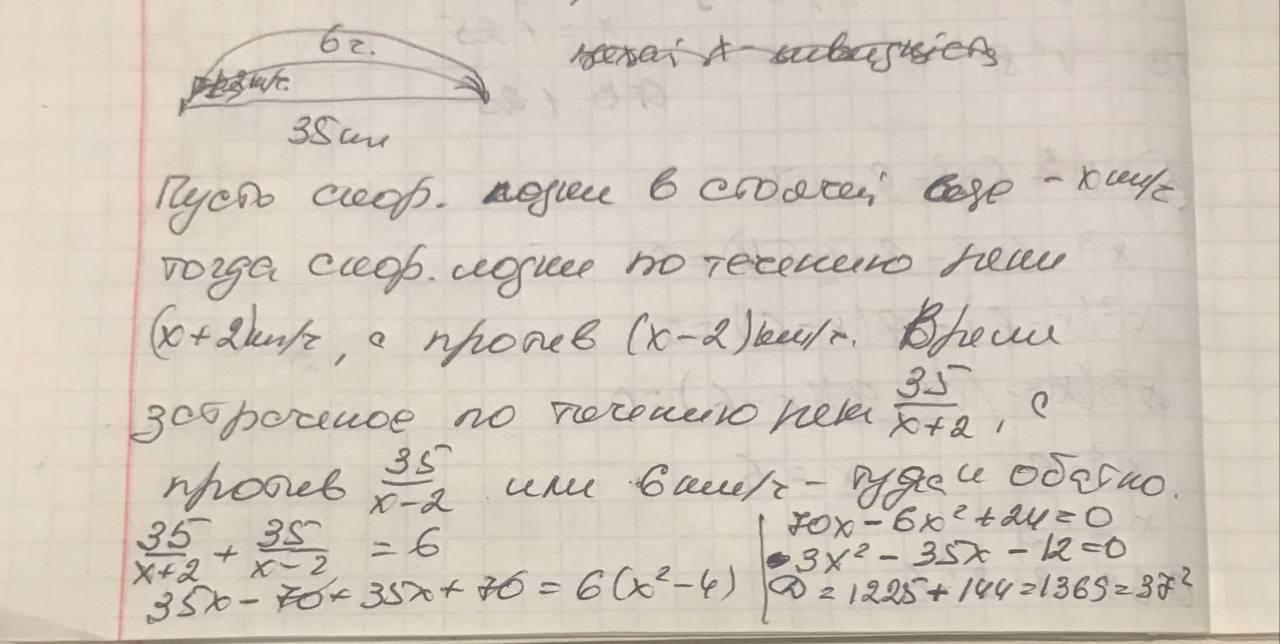 6 г.
км/г.
35 км
нехай х - швидкість
Пусть скор. лодки в стоячей воде - х км/г,
тогда скор. лодки по течению реки
(х+2)км/г, а против (х-2)км/г. Время
затраченое по течению реки 35/(x+2), а
против 35/(x-2) или 6 км/г - туда и обатно.
35/(x+2) + 35/(x-2) = 6
35x - 70 + 35x + 70 = 6(x²-4)
70x - 6x² + 24 = 0
3x² - 35x - 12 = 0
D = 1225 + 144 = 1369 = 37²